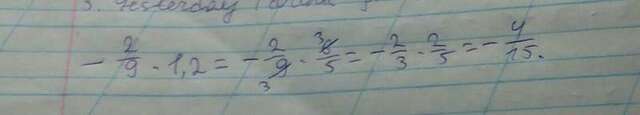 3. Yesterday
- 2/9 · 1,2 = - 2/9 3 · 3 6/5 = - 2/3 · 2/5 = - 4/15.